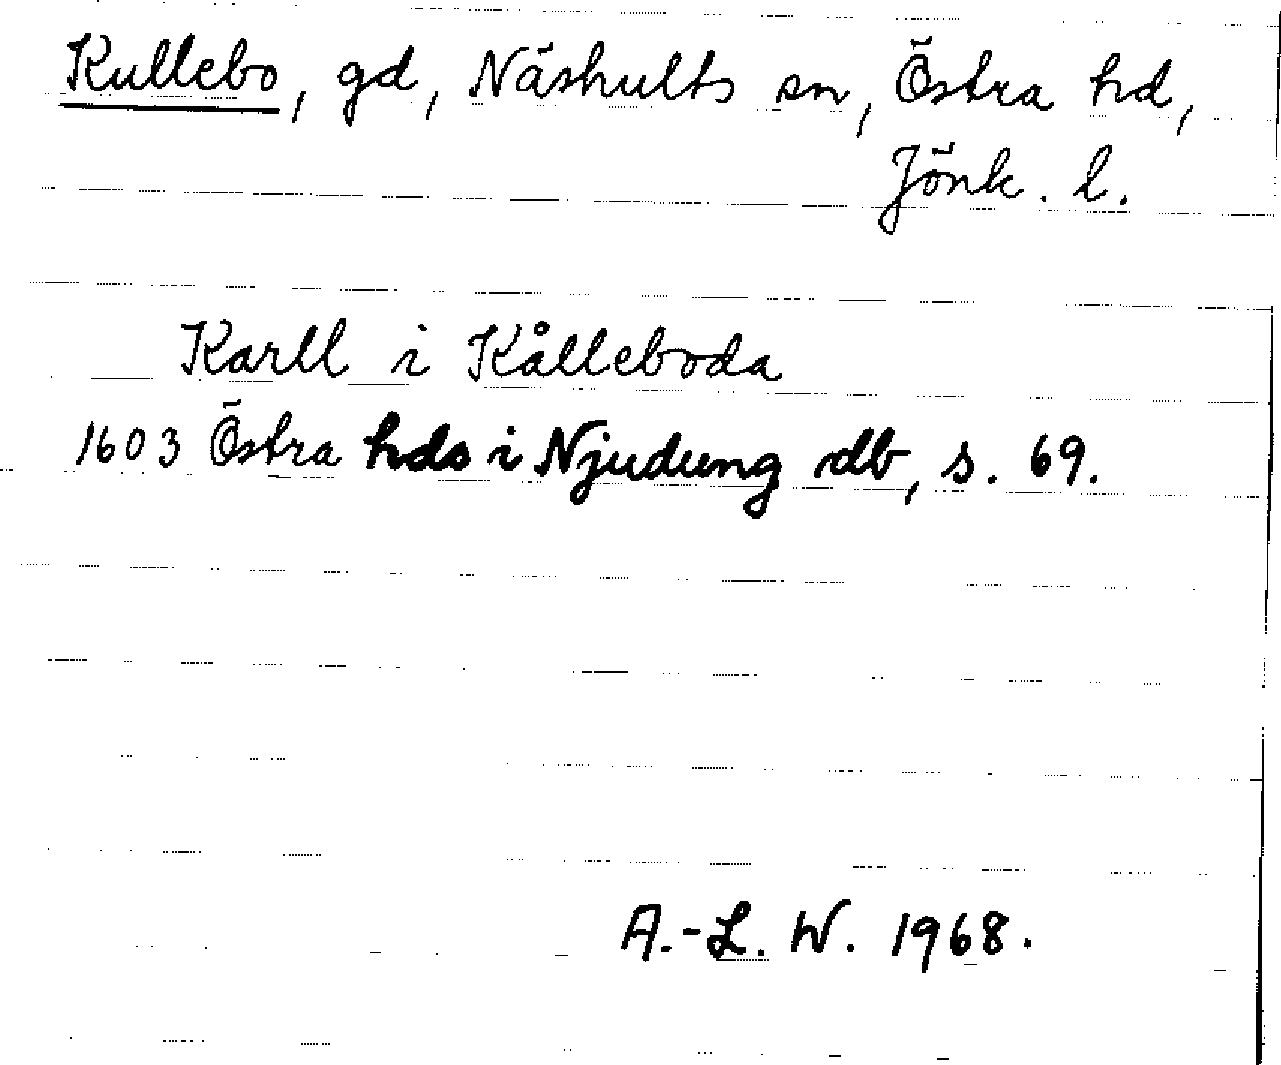 Kullebo, gd, Näshults sn, Östra hd,
Jönk. l.
Karll i Kålleboda
1603 Östra hds i Njudung db, s. 69.
A.-L. W. 1968.